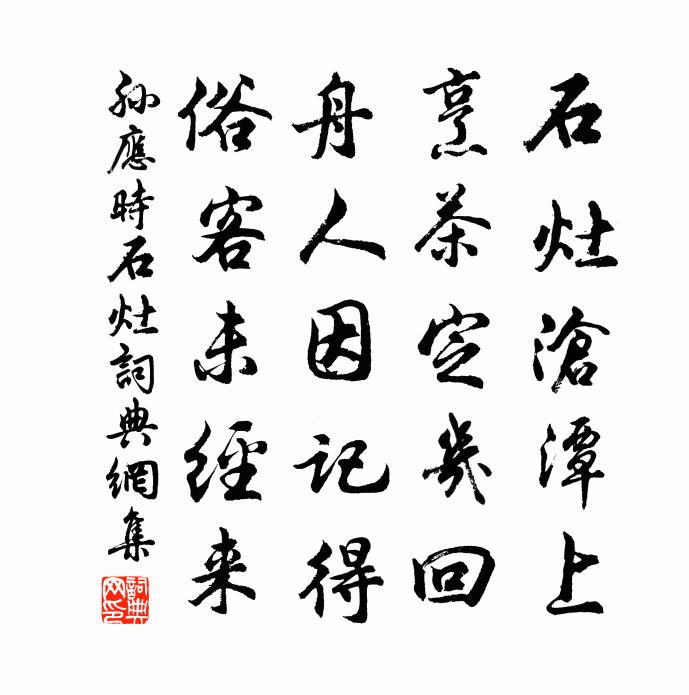 石灶滄潭上
烹茶定幾回
舟人因记得
俗客未經来
孙應時石灶詞典網集
詞典網印